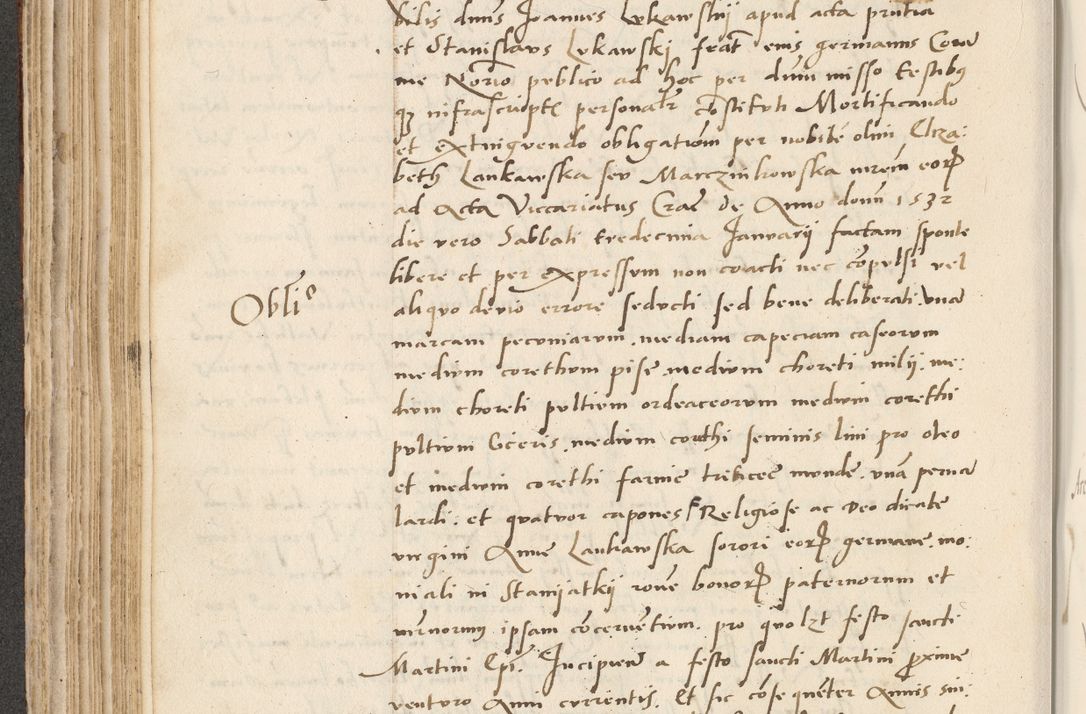 bilis dnus Joannes Lukawskij apud acta pñtia
et Stanislaus Lukawskj frať eius germanus Cora
me Notrio publico ad hoc per dnum misso testibus
qz infrascriptis personalr constituti Mortificando
et extinguendo obligationem per nobilem olim Elza:
beth Lankawska seu Marczinkowska mrem eorum
ad Acta Viccariatus Crac de Anno domi 1532
die vero Sabbati tredecima Januarij factam sponte
libere et per expressum non coacti nec compulsi vel
Oblio
aliquo devio errore seducti sed bene deliberati. una
marcam pecuniarum. mediam capeciam caseorum
medium corethum pise. medium choreti milij. me:
dium choreti pultium ordeaceorum medium corethi
pultium Ciceris. medium corethi seminis lini pro oleo
et medium corethi farine triticee munde. una perna
lardi. et quatuor capones Religiose ac Deo dicate
virgini Anne Lankawska sorori eorum germane. mo:
niali in Staniatkij roue bonorum paternorum et
mrnorum ipsam concernentium. pro quolzt festo sancti
Martini Epi. Incipiend a festo sancti Martini proxime
venturo Anni currentis. Et sic consequenter Annis sin: